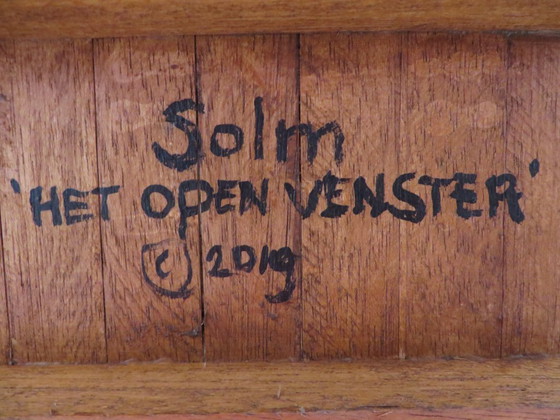 Solm
'HET OPEN VENSTER'
© 2019